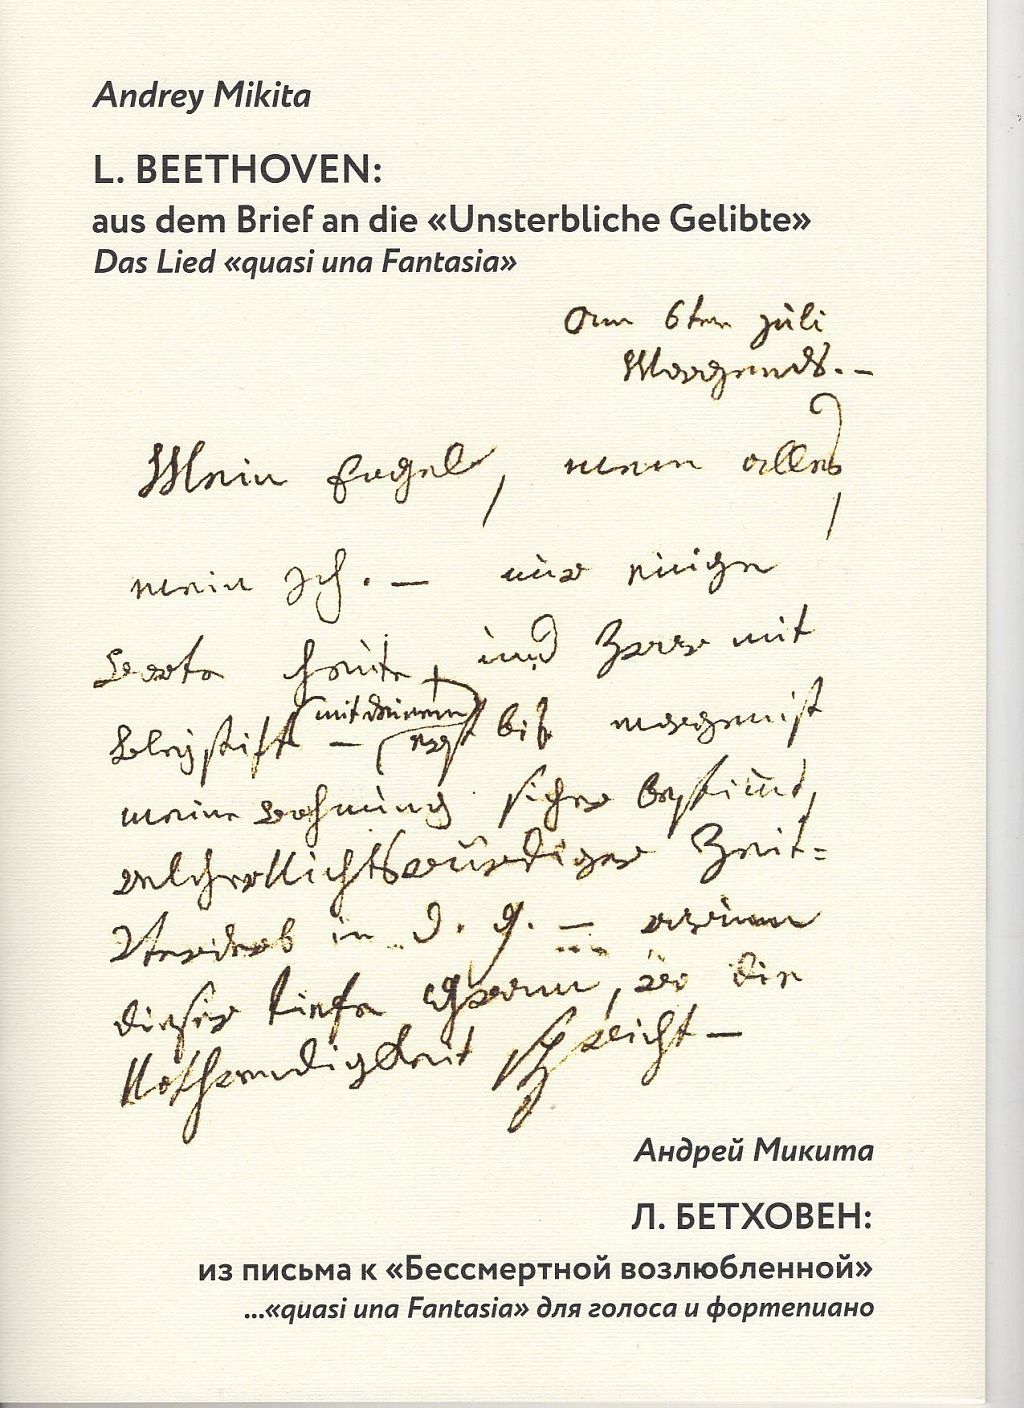 Andrey Mikita
L. BEETHOVEN:
aus dem Brief an die «Unsterbliche Gelibte»
Das Lied «quasi una Fantasia»
am 6ten juli
Morgends. –
Mein Engel, mein alles,
mein Ich. – nur einige
worte heute, und zwar mit
(mit deinem)
Bleystift – erst bis morgen ist
meine wohnung sicher bestimt,
welcher Nichtswürdiger Zeit=
Verderb in d. g. – warum
dieser tiefe Gram, wo die
Nothwendigkeit spricht –
Андрей Микита
Л. БЕТХОВЕН:
из письма к «Бессмертной возлюбленной»
...«quasi una Fantasia» для голоса и фортепиано